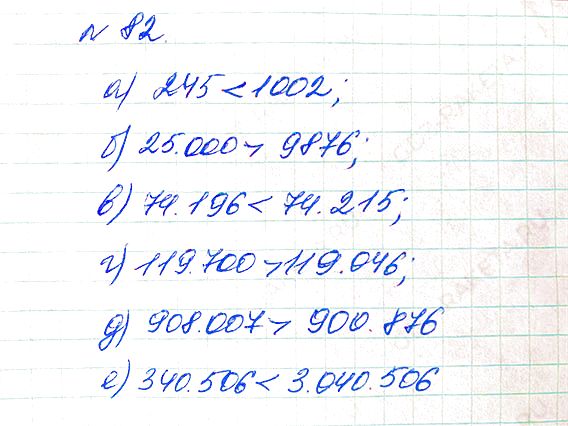 № 82.
а) 245 < 1002;
б) 25.000 > 9876;
в) 74.196 < 74.215;
г) 119.700 > 119.046;
д) 908.007 > 900.876
е) 340.506 < 3.040.506